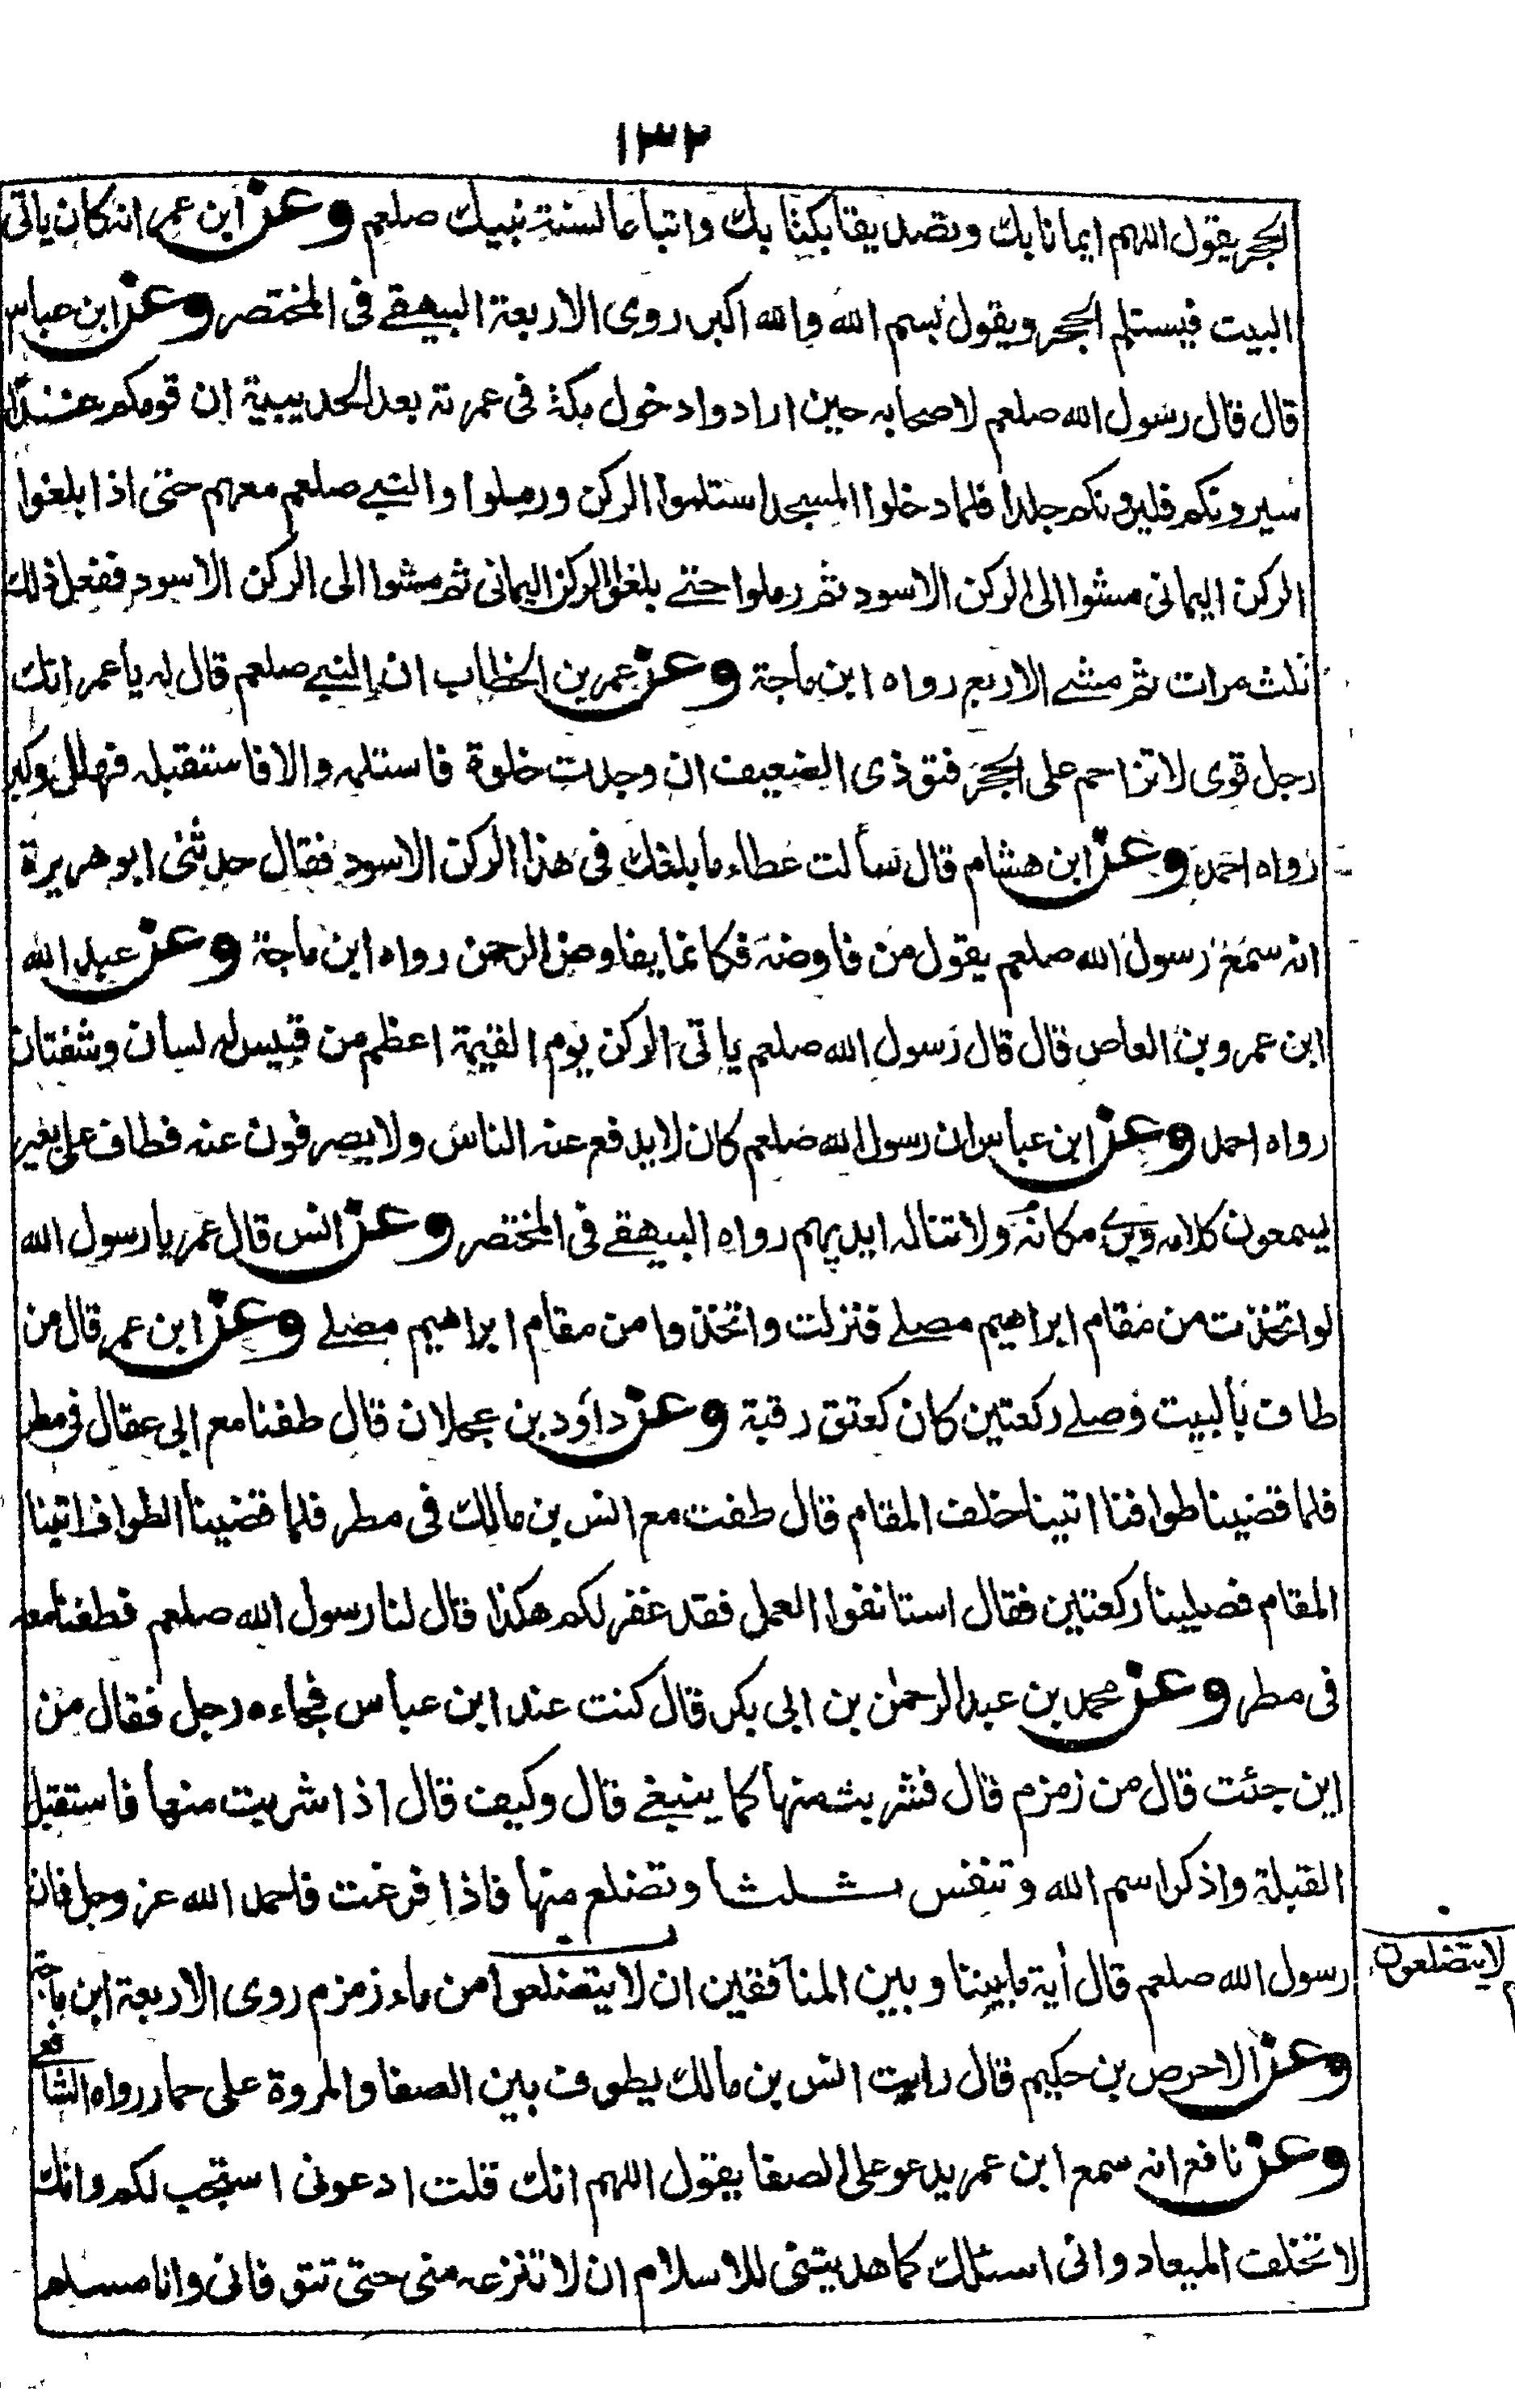 ١٣٢
الحجر يقول اللهم ايمانا بك وتصديقا بكتابك واتباعا لسنة نبيك صلعم وعن ابن عمر انه كان ياتى
البيت فيستلم الحجر ويقول بسم الله والله اكبر روى الاربعة البيهقے فى المختصر وعن ابن عباس
قال قال رسول الله صلعم لاصحابه حين ارادوا دخول مكة فى عمرته بعد الحديبية ان قومكم غدًا
سيرونكم فليرونكم جلدا فلما دخلوا المسجد استلموا الركن ورملوا والنبے صلعم معهم حتى اذا بلغوا
الركن اليمانى مشوا الى الركن الاسود ثم رملوا حتے بلغوا الركن اليمانى ثم مشوا الى الركن الاسود ففعل ذلك
ثلث مرات ثم مشے الاربع رواه ابن ماجة وعن عمر بن الخطاب ان النبے صلعم قال له يا عمر انك
رجل قوى لا تزاحم على الحجر فتوذى الضعيف ان وجدت خلوة فاستلمه والا فاستقبله فهلل وكبر
رواه احمد وعن ابن هشام قال سألت عطاء ما بلغك فى هذا الركن الاسود فقال حدثنى ابو هريرة
انه سمع رسول الله صلعم يقول من فاوضه فكانما يفاوض الرحمن رواه ابن ماجة وعن عبد الله
ابن عمرو بن العاص قال قال رسول الله صلعم ياتى الركن يوم القيمة اعظم من قبيس له لسان وشفتان
رواه احمد وعن ابن عباس ان رسول الله صلعم كان لا يدفع عنه الناس ولا يصرفون عنه فطاف على بعير
ليسمعون كلامه ويرے مكانه ولا تناله ايديهم رواه البيهقے فى المختصر وعن انس قال عمر يا رسول الله
لو اتخذت من مقام ابراهيم مصلے فنزلت واتخذوا من مقام ابراهيم مصلے وعن ابن عمر قال من
طاف بالبيت وصلے ركعتين كان كعتق رقبة وعن داود بن عجلان قال طفنا مع ابى عقال فى مطر
فلما قضينا طوافنا اتينا خلف المقام قال طفت مع انس بن مالك فى مطر فلما قضينا الطواف اتينا
المقام فصلينا ركعتين فقال استانفوا العمل فقد غفر لكم هكذا قال لنا رسول الله صلعم فطفنا معه
فى مطر وعن محمد بن عبد الرحمٰن بن ابى بكر قال كنت عند ابن عباس فجاءه رجل فقال من
اين جئت قال من زمزم قال فشربت منها كما ينبغے قال وكيف قال اذا شربت منها فاستقبل
القبلة واذكر اسم الله وتنفس ثلثا وتضلع منها فاذا فرغت فاحمد الله عز وجل فان
رسول الله صلعم قال أية ما بيننا وبين المنافقين ان لا يتضلعوا من ماء زمزم روى الاربعة ابن ماجة
لا يتضلعون
وعن الاحرص بن حكيم قال رايت انس بن مالك يطوف بين الصفا والمروة على حمار رواه الشافعے
وعن نافع انه سمع ابن عمر يدعو على الصفا يقول اللهم انك قلت ادعونى استجب لكم وانك
لا تخلف الميعاد وانى اسئلك كما هديتنى للاسلام ان لا تنزعه منى حتى تتوفانى وانا مسلم